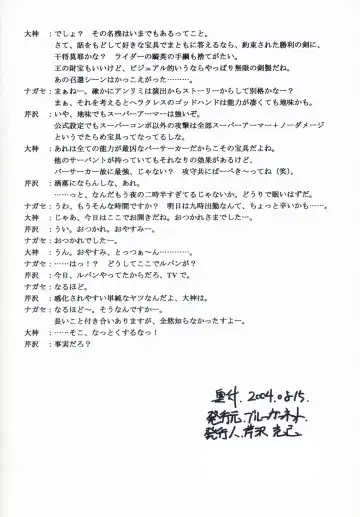 大神　：でしょ？　その名残はいまでもあるってこと。
さて、話をもどして好きな宝具でまともに答えるなら、約束された勝利の剣に、
干将莫耶かな？　ライダーの騎英の手綱も捨てがたい。
王の財宝もいいけど、ビジュアル的いうならやっぱり無限の剣製だね。
あの召還シーンはかっこえがった………。
ナガセ：まぁねー。確かにアンリミは演出からストーリーからして別格かなー？
まぁ、それを考えるとヘラクレスのゴッドハンドは能力が凄くても地味かも。
芹沢　：いや、地味でもスーパーアーマーは強いぞ。
公式設定でもスーパーコンボ以外の攻撃は全部スーパーアーマー＋ノーダメージ
というでたらめ宝具ってなってるしな。
大神　：あれは全ての能力が最凶なバーサーカーだからこその宝具だよね。
他のサーバントが持っていてもそれなりの効果があるけど、
バーサーカー故に最強、じゃない？　攻守共にばーべき～ってね（笑）。
芹沢　：洒落にならんしな、あれ。
……っと、なんだもう夜の二時半すぎてるじゃないか。どうりで眠いはずだ。
ナガセ：うわ、もうそんな時間ですか？　明日は九時出勤なんて、ちょっと辛いかも……。
大神　：じゃあ、今日はここでお開きだね。おつかれさまでしたー。
芹沢　：うい。おつかれ。おやすみー。
ナガセ：おつかれでしたー。
大神　：うん。おやすみ、とっつぁ～ん…………。
ナガセ：……はっ！？　どうしてここでルパンが？
芹沢　：今日、ルパンやってたからだろ、TVで。
ナガセ：なるほど。
芹沢　：感化されやすい単純なヤツなんだよ、大神は。
ナガセ：なるほど～。そうなんですかー。
長いこと付き合いありますが、全然知らなかったすよー。
大神　：……そこ、なっとくするなっ！
芹沢　：事実だろ？
奥付. 2004.08.15.
発行元. ブルーガーネット
発行人. 芹沢 克己